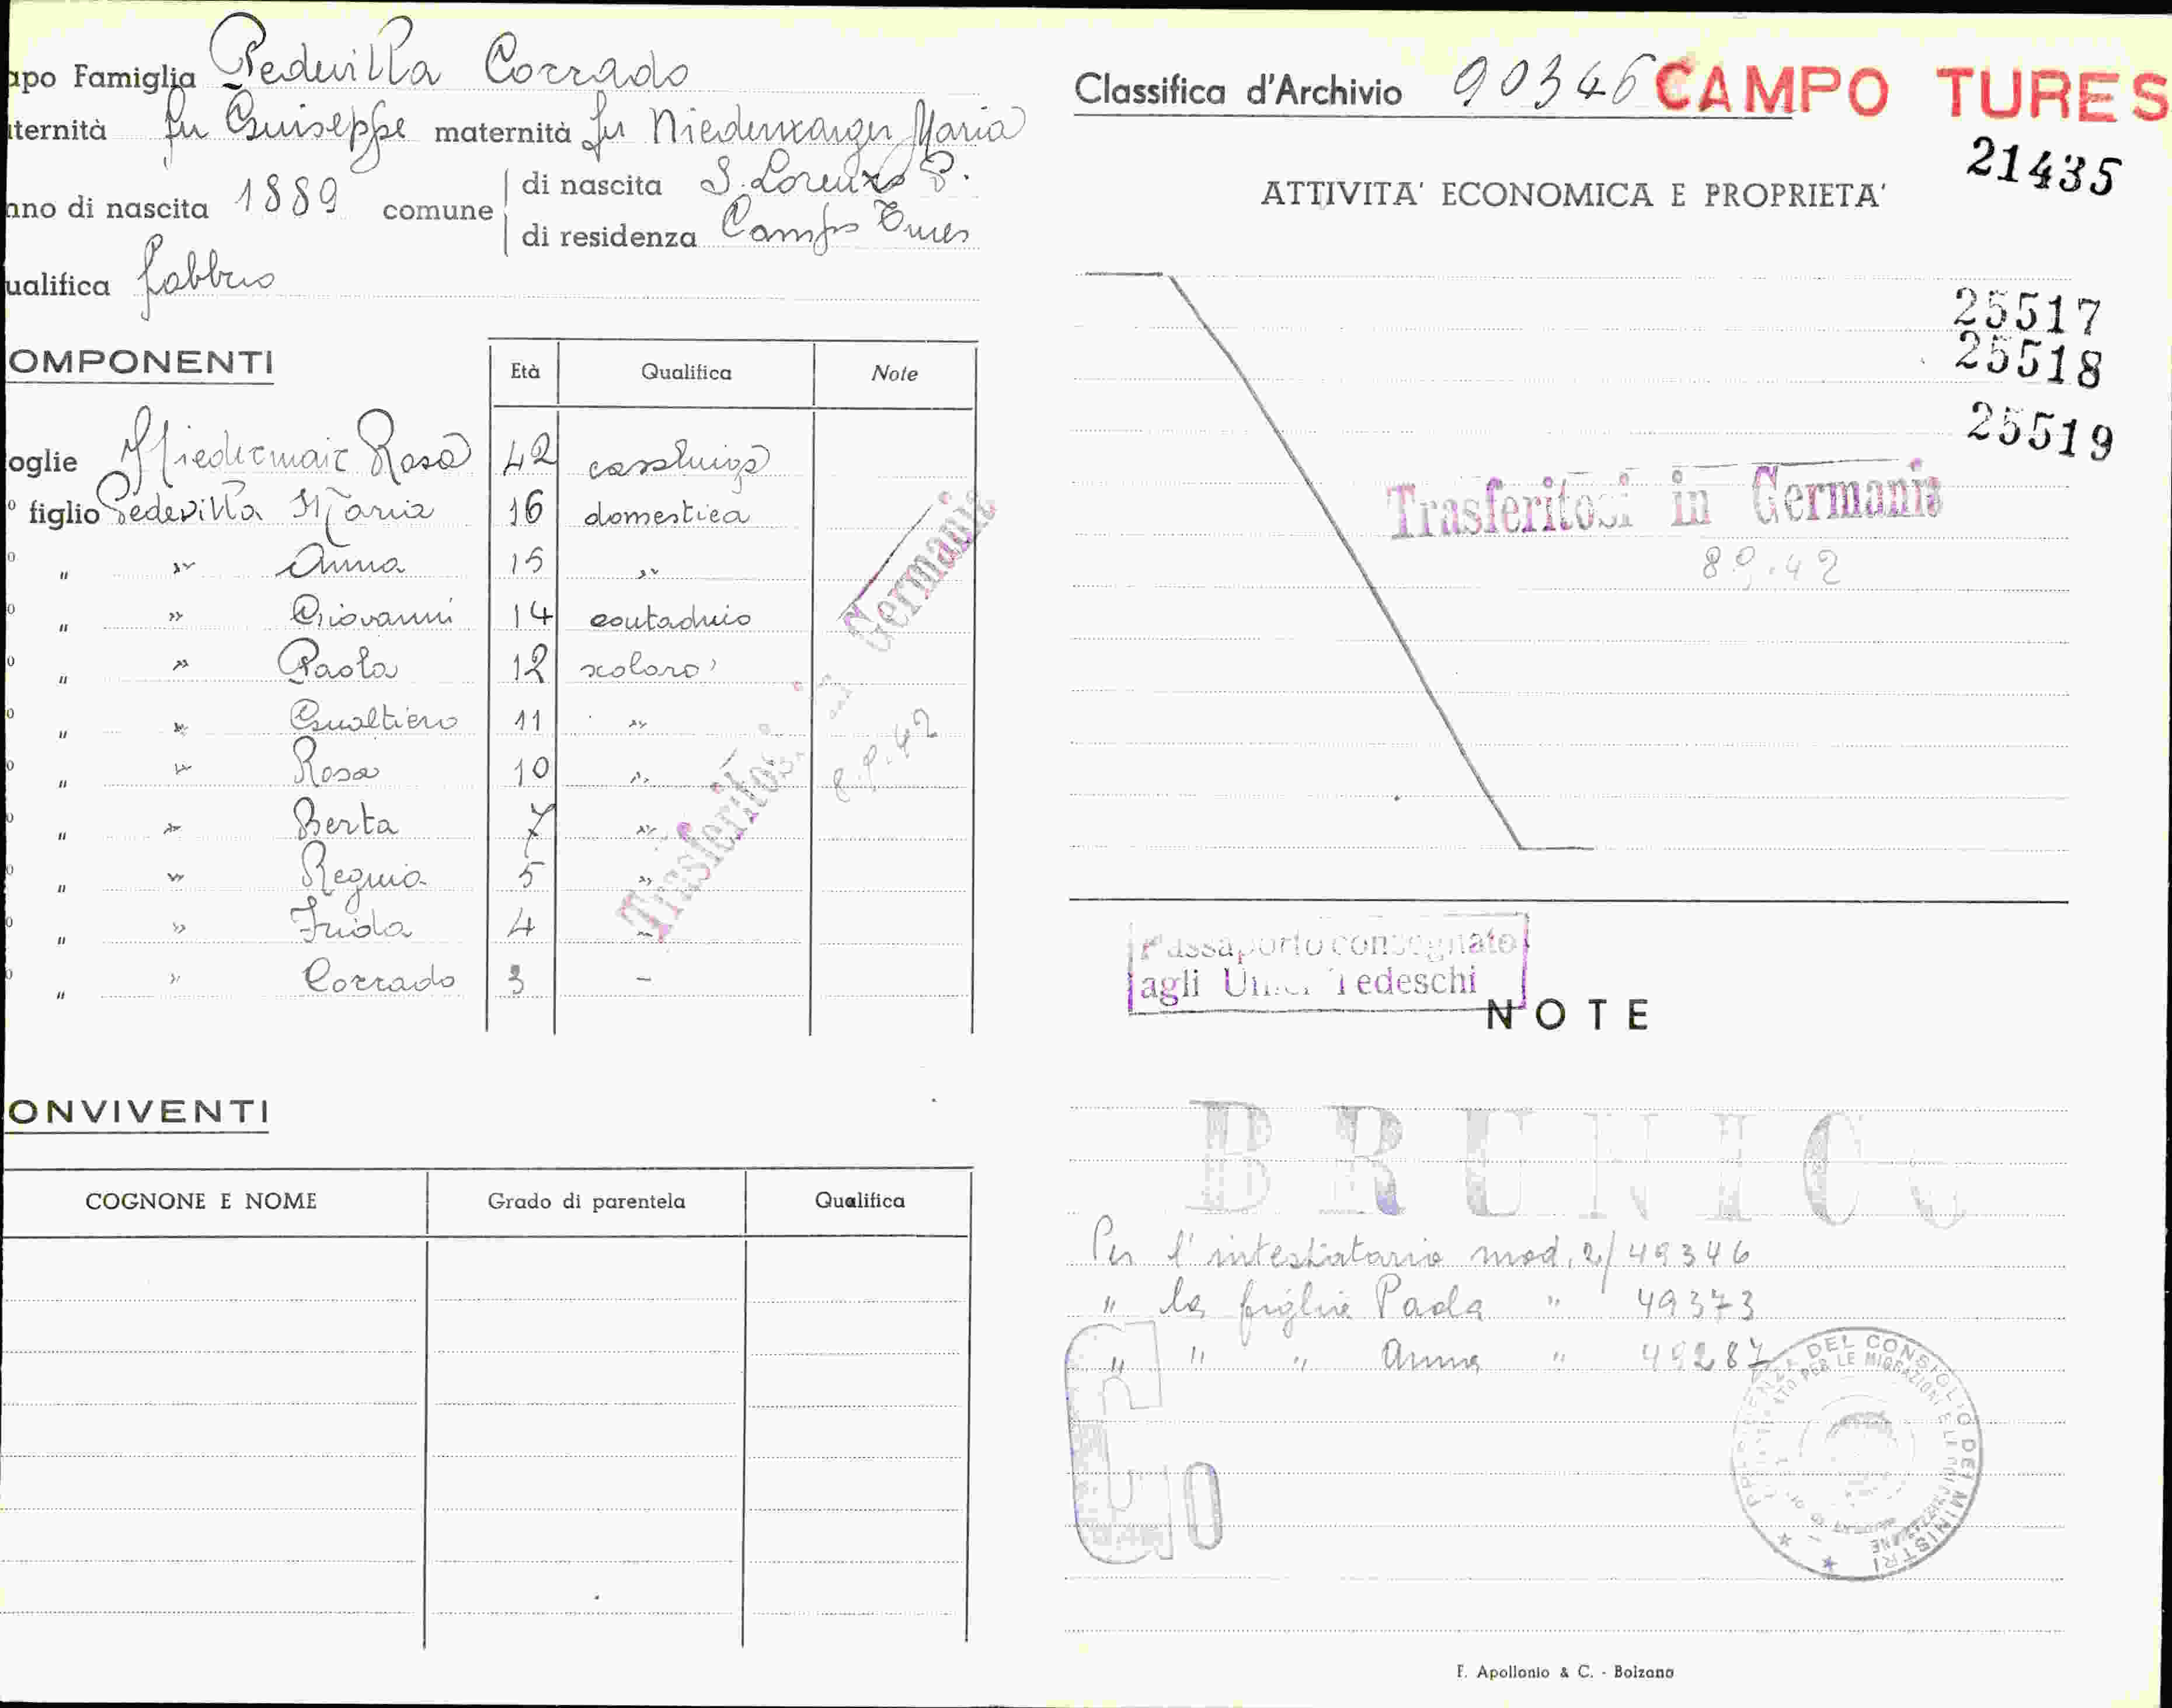 apo Famiglia Pedevilla Corrado
ternità fu Giuseppe maternità fu Niederwanger Maria
nno di nascita 1889 comune di nascita S. Lorenzo P.
di residenza Campo Tures
ualifica fabbro
OMPONENTI
Età Qualifica Note
oglie Niedermair Rosa 42 casalinga
° figlio Pedevilla Maria 16 domestica
° " " Anna 15 "
° " " Giovanni 14 contadino
° " " Paola 12 scolaro
° " " Gualtiero 11 "
° " " Rosa 10 "
° " " Berta 7 "
° " " Regina 5 "
° " " Frida 4 -
° " " Corrado 3 -
Trasferitosi in Germania
8.9.42
ONVIVENTI
COGNONE E NOME Grado di parentela Qualifica
Classifica d'Archivio 90346 CAMPO TURES
21435
ATTIVITA' ECONOMICA E PROPRIETA'
25517
25518
25519
Trasferitosi in Germania
8.9.42
Passaporto consegnato
agli Uffici Tedeschi
NOTE
BRUNICO
Per l'intestatario mod. 2/49346
" la figlia Paola " 49373
" " " Anna " 49287
PRESIDENZA DEL CONSIGLIO DEI MINISTRI
F. Apollonio & C. - Bolzano